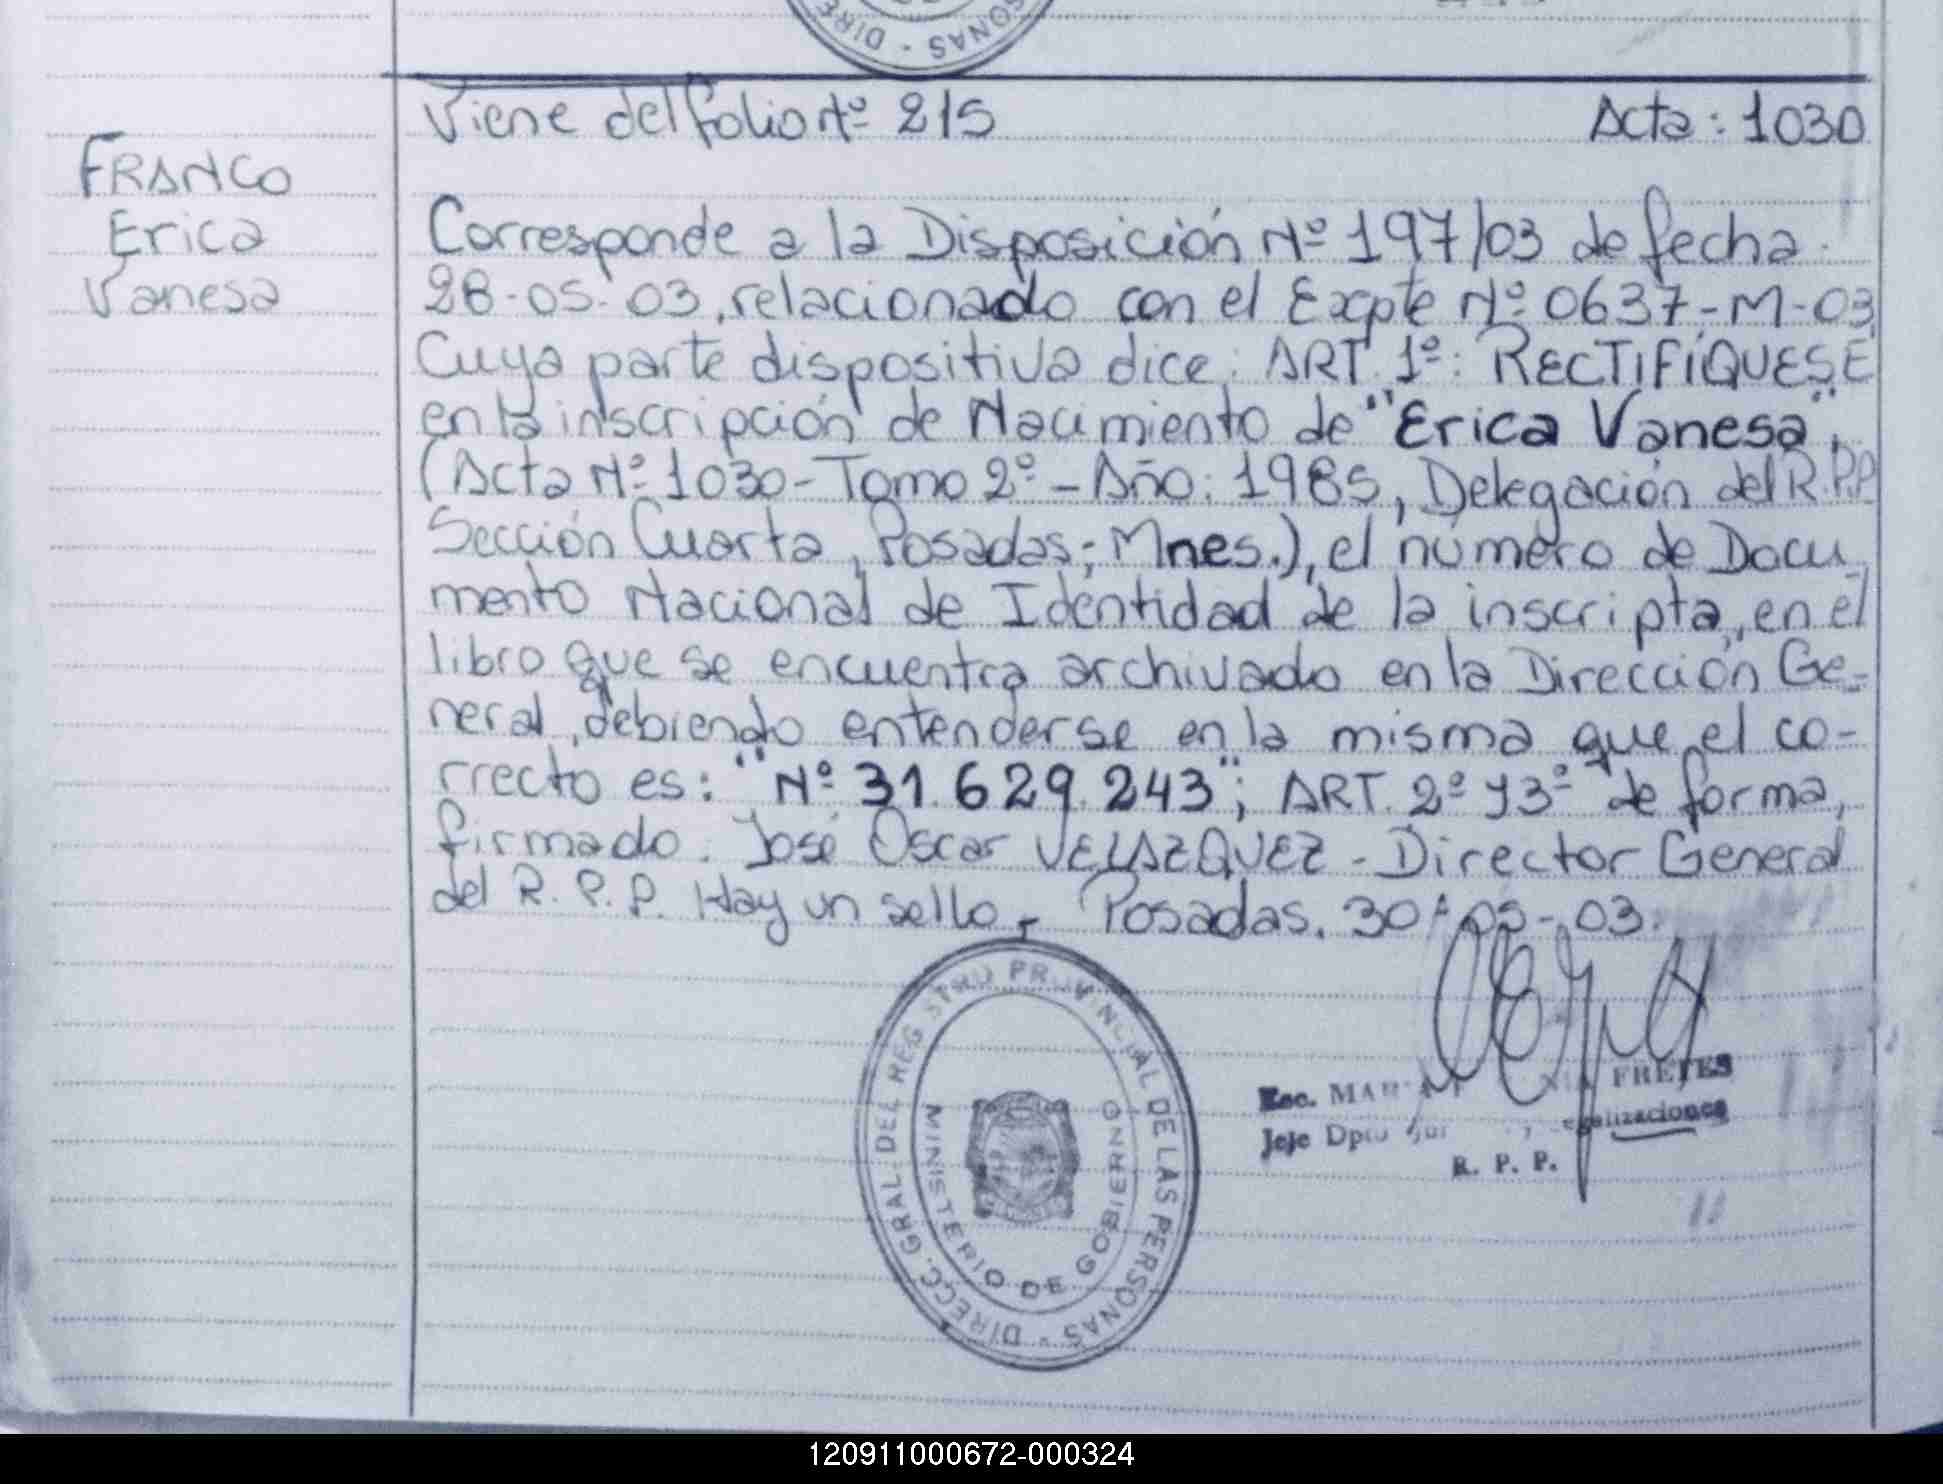 Viene del folio Nº 215 Acta: 1030
FRANCO
Erica
Vanesa
Corresponde a la Disposición Nº 197/03 de fecha
28-05-03, relacionado con el Expte Nº 0637-M-03
Cuya parte dispositiva dice: ART. 1º: RECTIFÍQUESE
en la inscripción de Nacimiento de "Erica Vanesa",
(Acta Nº 1030-Tomo 2º-Año: 1985, Delegación del R.P.P
Sección Cuarta, Posadas; Mnes.), el número de Docu-
mento Nacional de Identidad de la inscripta, en el
libro que se encuentra archivado en la Dirección Ge-
neral, debiendo entenderse en la misma que el co-
rrecto es: "Nº 31.629.243"; ART. 2º y 3º de forma,
firmado: José Oscar VELAZQUEZ - Director General
del R.P.P. Hay un sello.- Posadas, 30-05-03.
DIRECC. GRAL. DEL REGISTRO PROVINCIAL DE LAS PERSONAS
MINISTERIO DE GOBIERNO
Esc. FRETES
Jefe Dpto
R. P. P.
120911000672-000324